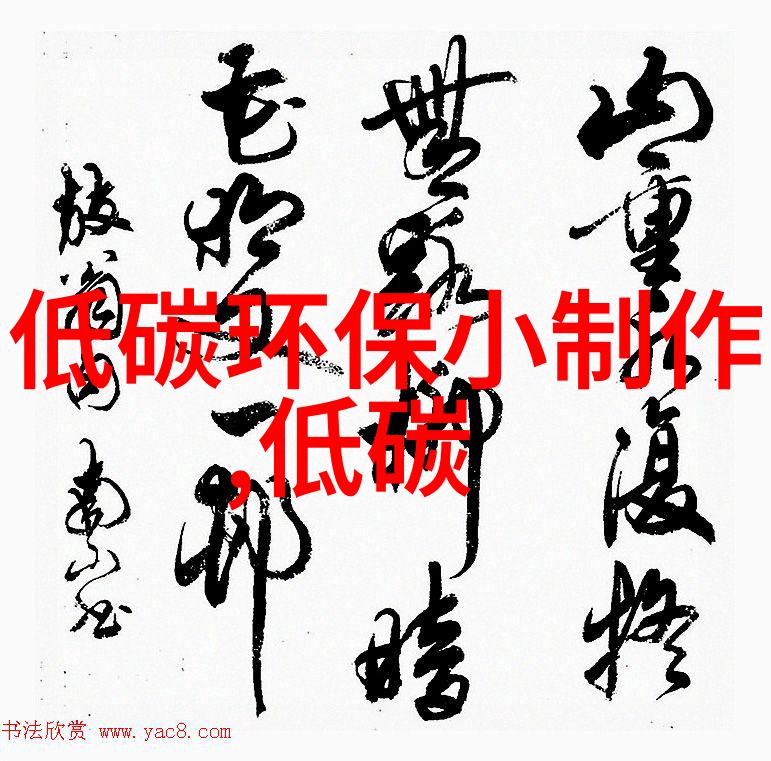 山重水復疑
無路柳暗
花明又一邨
放翁句
低碳环保小制作
,低碳
书法欣赏 www.yac8.com